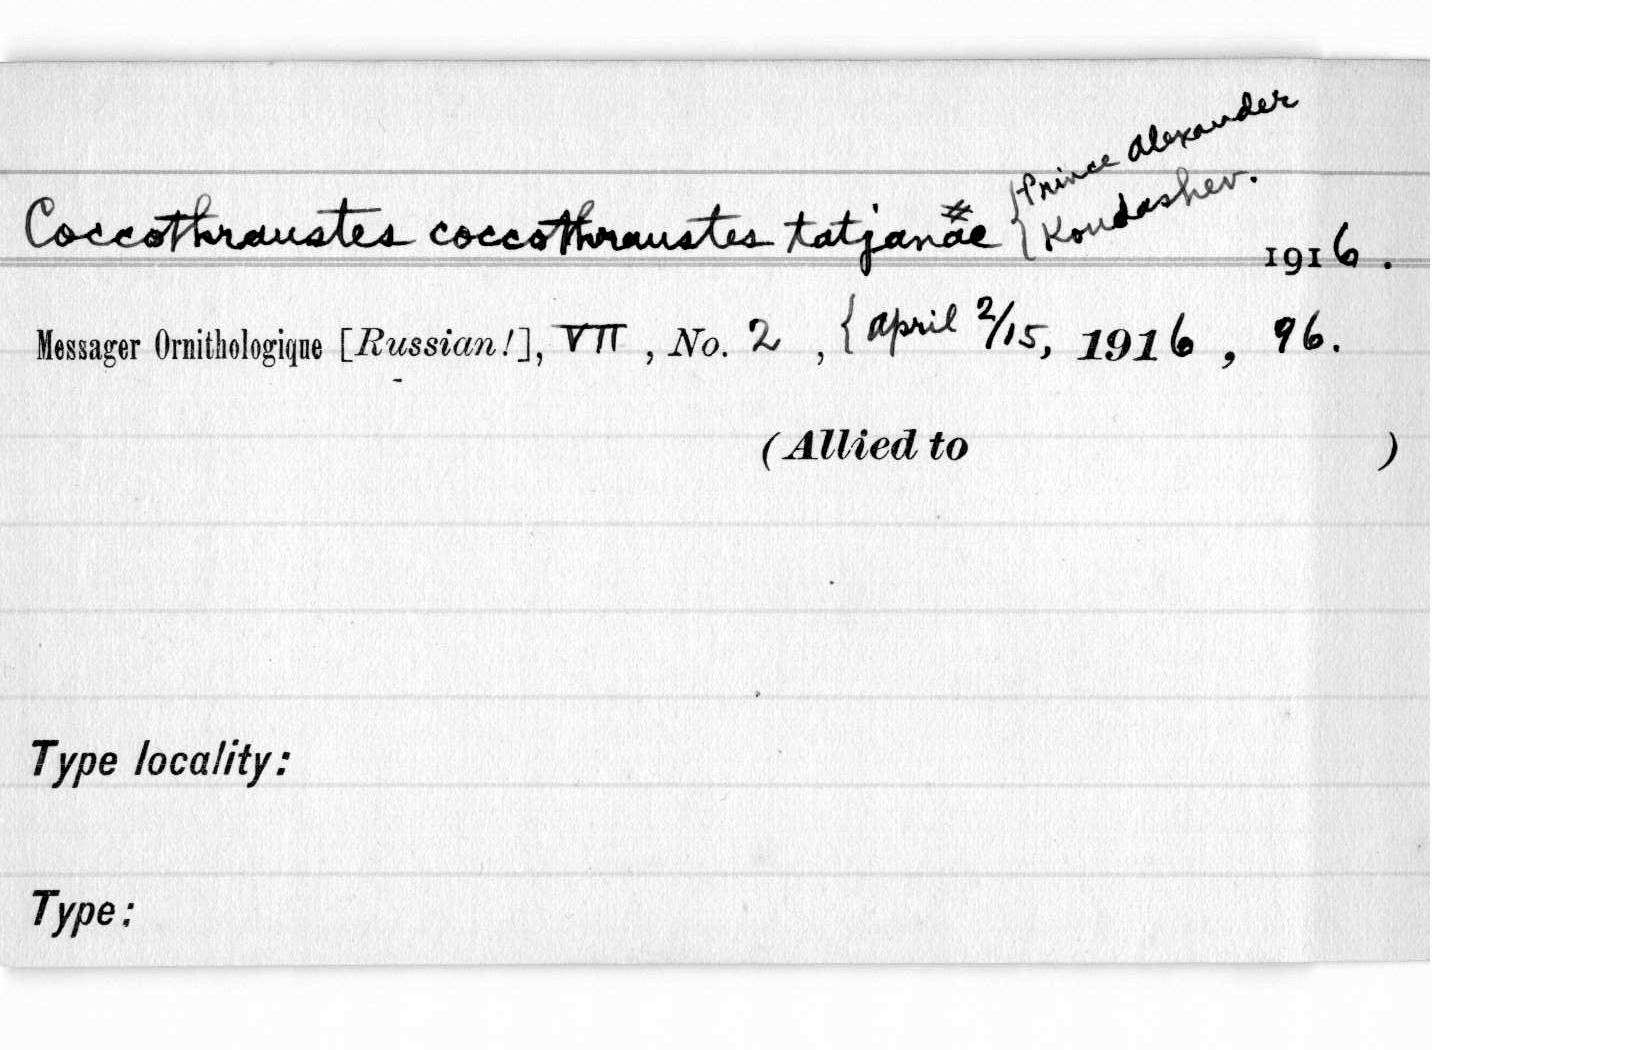 Coccothraustes coccothraustes tatjanae # { Prince Alexander
Koudashev. 1916.
Messager Ornithologique [Russian!], VII, No. 2, { april 2/15, 1916, 96.
(Allied to )
Type locality:
Type: